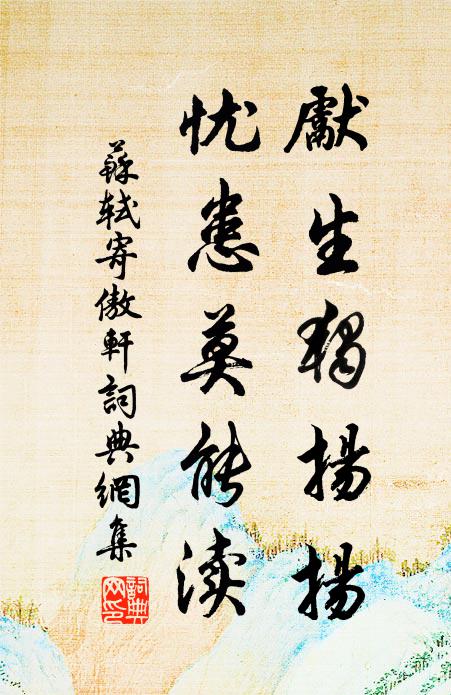 獻生獨揚揚
忧患莫能渎
蘇軾寄傲軒詞典網集
詞典网印